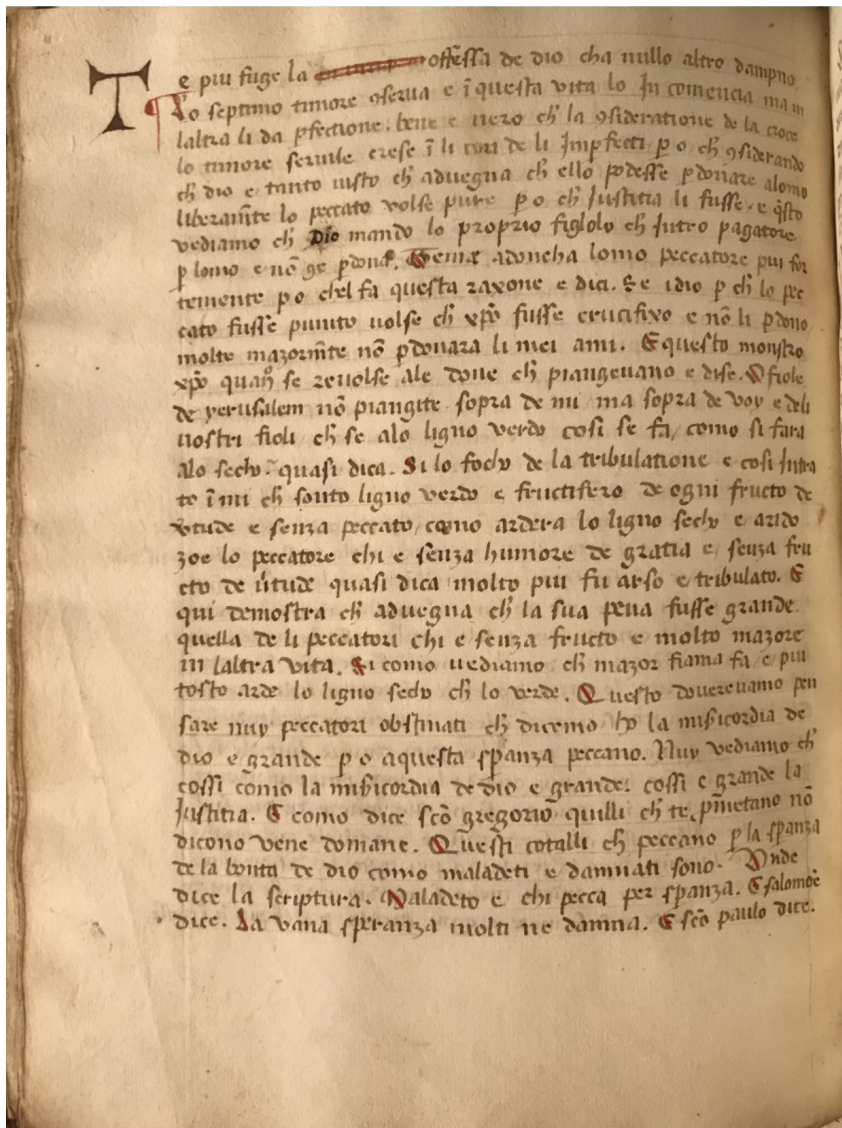 T
e piu fuge la offessa de dio cha nullo altro dampno
Lo septimo timore 9serua e ī questa vita lo In comencia ma in
laltra li da pfectione. bene e uero ch̄ la 9sideratione de la croce
lo timore seruile crese ī li cori de li Impfecti p o ch̄ 9siderando
ch̄ dio e tanto iusto ch̄ aduegna ch̄ ello podesse pdonare alomo
liberam̄te lo peccato volse pure p o ch̄ Justitia li fusse. e q̄sto
vediamo ch̄ Dio mando lo proprio figlolo ch̄ Intro pagatore
p lomo e nō ge pdona. Tema adoncha lomo peccatore piu for
temente p o chel fa questa raxone e dici. Se idio p ch̄ lo pec
cato fusse punito uolse ch̄ xp̄o fusse crucifixo e nō li pdono
molto mazorm̄te nō pdonara li mei ami. E questo monstro
xp̄o quan̄ se reuolse ale done ch̄ piangeuano e dise. O fiole
de yerusalem nō piangite sopra de mi / ma sopra de voy e deli
uostri fioli ch̄ se alo ligno verdo cosi se fa / como si fara
alo secho. quasi dica. Si lo focho de la tribulatione e cosi Intra
to ī mi ch̄ sonto ligno verdo e fructifero de ogni fructo de
vtude e senza peccato / como ardera lo ligno secho e arido
zoe lo peccatore chi e senza humore de gratia e senza fru
cto de ūtude quasi dica molto piu fu arso e tribulato. E
qui demostra ch̄ aduegna ch̄ la sua pena fusse grande
quella de li peccatori chi e senza fructo e molto mazore
in laltra vita. Si como uediamo ch̄ mazor fiama fa e piu
tosto arde lo ligno secho ch̄ lo verde. Questo douereuamo pen
sare nuy peccatori obstinati ch̄ dicemo ho la misicordia de
dio e grande p o aquesta spanza peccano. Nuy vediamo ch̄
cossi como la misicordia de dio e grande: cossi e grande la
Justitia. E como dice sc̄o gregorio quilli ch̄ te pmetano nō
dicono vene domane. Questi cotalli ch̄ peccano p la spanza
de la bonta de dio como maladeti e damnati sono. Vnde
dice la scriptura. Maladeto e chi pecca per spanza. E salomōe
dice. La vana speranza molti ne damna. E sc̄o paulo dice.